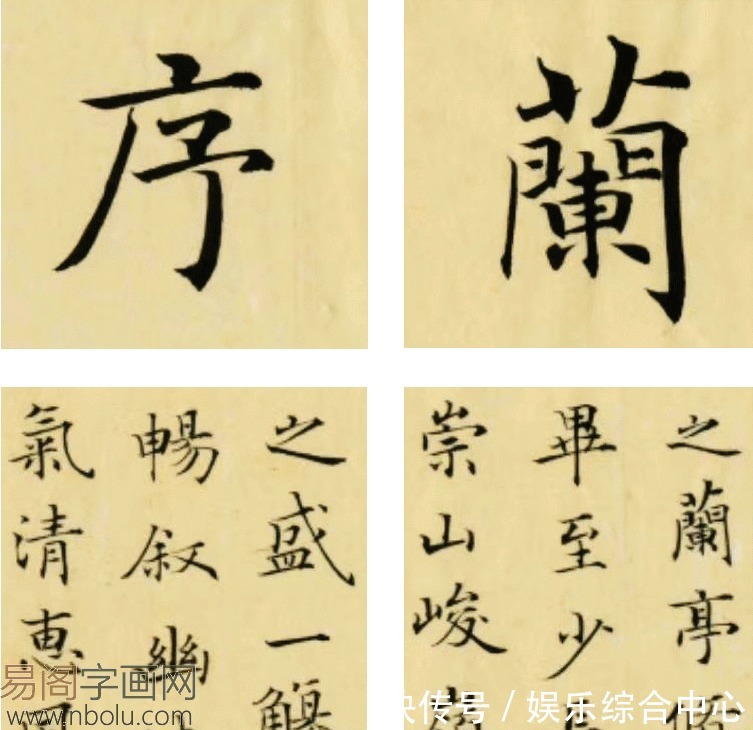 蘭
序
之蘭亭
畢至少
崇山峻
之盛一觴
暢叙幽
氣清惠
易阁字画网
www.nbolu.com
快传号 / 娱乐综合中心